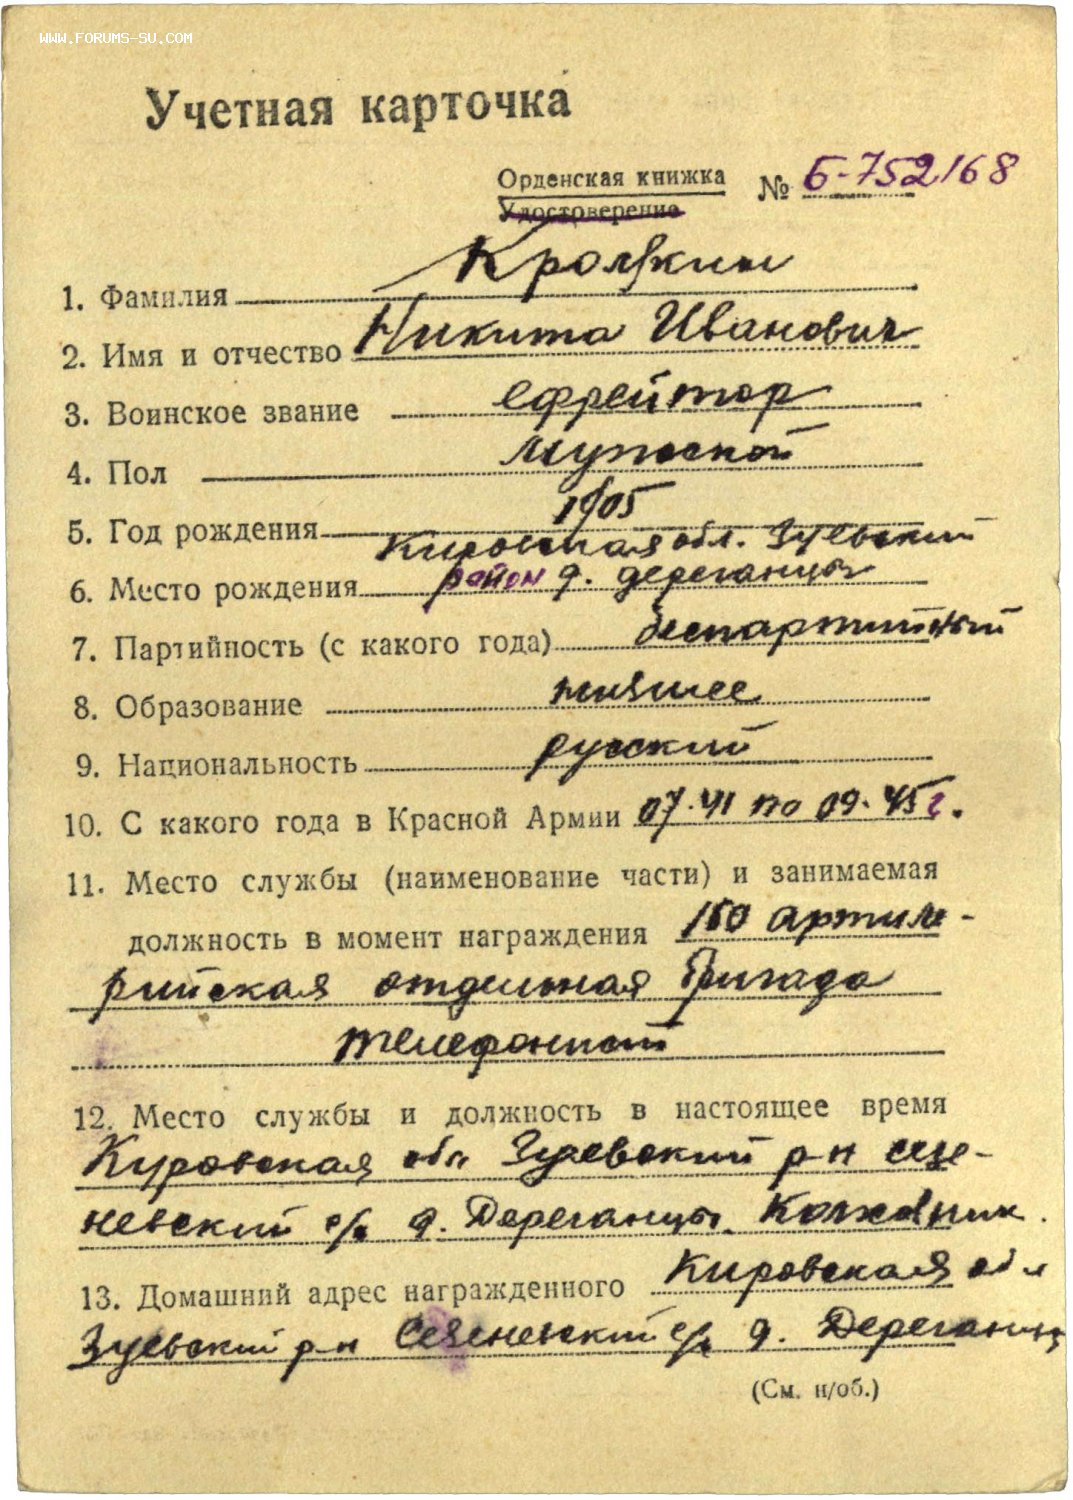 WWW.FORUMS-SU.COM
Учетная карточка
Орденская книжка
Удостоверение
№ Б-752168
1. Фамилия
2. Имя и отчество Никита Иванович
3. Воинское звание ефрейтор
4. Пол мужской
5. Год рождения 1905
Кировская обл. Зуевский
6. Место рождения район д. дереганцы
7. Партийность (с какого года) беспартийный
8. Образование низшее
9. Национальность русский
10. С какого года в Красной Армии 07.41 по 09.45 г.
11. Место службы (наименование части) и занимаемая
должность в момент награждения артиле-
рийская отдельная бригада
телефонист
12. Место службы и должность в настоящее время
Кировская обл Зуевский р-н сезе-
невский с/с д. Дереганцы. Колхозник.
13. Домашний адрес награжденного Кировская обл
Зуевский р-н Сезеневский с/с д. Дереганцы
(См. н/об.)